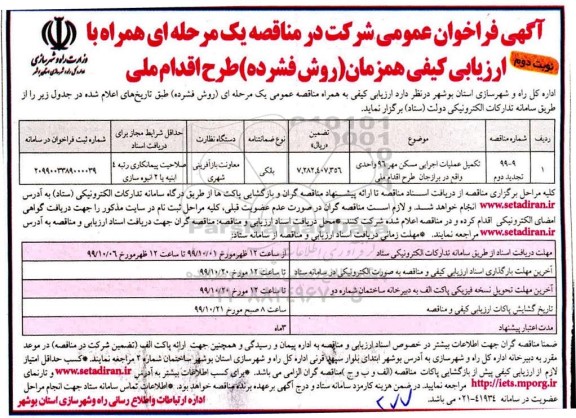 آگهی فراخوان عمومی شرکت در مناقصه یک مرحله ای همراه با
ارزیابی کیفی همزمان (روش فشرده) طرح اقدام ملی
نوبت دوم
وزارت راه و شهرسازی
اداره کل راه و شهرسازی استان بوشهر
اداره کل راه و شهرسازی استان بوشهر درنظر دارد ارزیابی کیفی به همراه مناقصه عمومی یک مرحله ای (روش فشرده) طبق تاریخ‌های اعلام شده در جدول زیر را از
طریق سامانه تدارکات الکترونیکی دولت (ستاد) برگزار نماید.
ردیف شماره مناقصه موضوع تضمین «ریال» نوع ضمانتنامه دستگاه نظارت حداقل شرایط مجاز برای دریافت اسناد شماره ثبت فراخوان در سامانه
۱ ۹۹-۹ تجدید دوم تکمیل عملیات اجرایی مسکن مهر ۹۶ واحدی واقع در برازجان طرح اقدام ملی ۷,۲۸۲,۴۰۷,۳۵۶ بانکی معاونت بازآفرینی شهری صلاحیت پیمانکاری رتبه ۴ ابنیه یا ۲ انبوه سازی ۲۰۹۹۰۰۳۳۸۹۰۰۰۰۳۹
کلیه مراحل برگزاری مناقصه از دریافت اسناد مناقصه تا ارائه پیشنهاد مناقصه گران و بازگشایی پاکت ها از طریق درگاه سامانه تدارکات الکترونیکی (ستاد) به آدرس
www.setadiran.ir انجام خواهد شد. و لازم است مناقصه گران در صورت عدم عضویت قبلی، کلیه مراحل ثبت نام در سایت مذکور را جهت دریافت گواهی
امضای الکترونیکی اقدام کرده و در مناقصه اعلام شده شرکت کنند. *محل دریافت اسناد ارزیابی و مناقصه: مناقصه گران جهت دریافت اسناد ارزیابی و مناقصه به آدرس
www.setadiran.ir مراجعه نمایند. *مهلت زمانی دریافت اسناد ارزیابی و مناقصه از سامانه ستاد:
مهلت دریافت اسناد از طریق سامانه تدارکات الکترونیکی ستاد از ساعت ۱۲ ظهر مورخ ۹۹/۱۰/۰۱ تا ساعت ۱۲ ظهر مورخ ۹۹/۱۰/۰۶
آخرین مهلت بارگذاری اسناد ارزیابی کیفی و مناقصه به صورت الکترونیکی در سامانه ستاد تا ساعت ۱۲ مورخ ۹۹/۱۰/۲۰
آخرین مهلت تحویل نسخه فیزیکی پاکت الف به دبیرخانه ساختمان شماره دو تا ساعت ۱۲ مورخ ۹۹/۱۰/۲۰
تاریخ گشایش پاکات ارزیابی کیفی و مناقصه ساعت ۸ صبح مورخ ۹۹/۱۰/۲۱
مدت اعتبار پیشنهاد ۳ماه
ضمنا مناقصه گران جهت اطلاعات بیشتر در خصوص اسناد ارزیابی و مناقصه به اداره پیمان و رسیدگی و همچنین جهت ارائه پاکت الف (تضمین شرکت در مناقصه) در موعد
مقرر به دبیرخانه اداره کل راه و شهرسازی به آدرس بوشهر ابتدای بلوار سپهر قرنی اداره کل راه و شهرسازی استان بوشهر ساختمان شماره ۲ مراجعه نمایند. *کسب حداقل امتیاز
لازم از ارزیابی کیفی پیش از بازگشایی پاکات مناقصه (الف و ب و ج) مناقصه گران الزامی می باشد. *برای کسب اطلاعات بیشتر به آدرس www.setadiran.ir و تارنمای
http://iets.mporg.ir مراجعه نمایید. در ضمن هزینه کارمزد سامانه ستاد و درج آگهی برعهده برنده مناقصه خواهد بود. *اطلاعات تماس سامانه ستاد جهت انجام مراحل
عضویت در سامانه ۴۱۹۳۴-۰۲۱ می باشد.
اداره ارتباطات و اطلاع رسانی راه و شهرسازی استان بوشهر